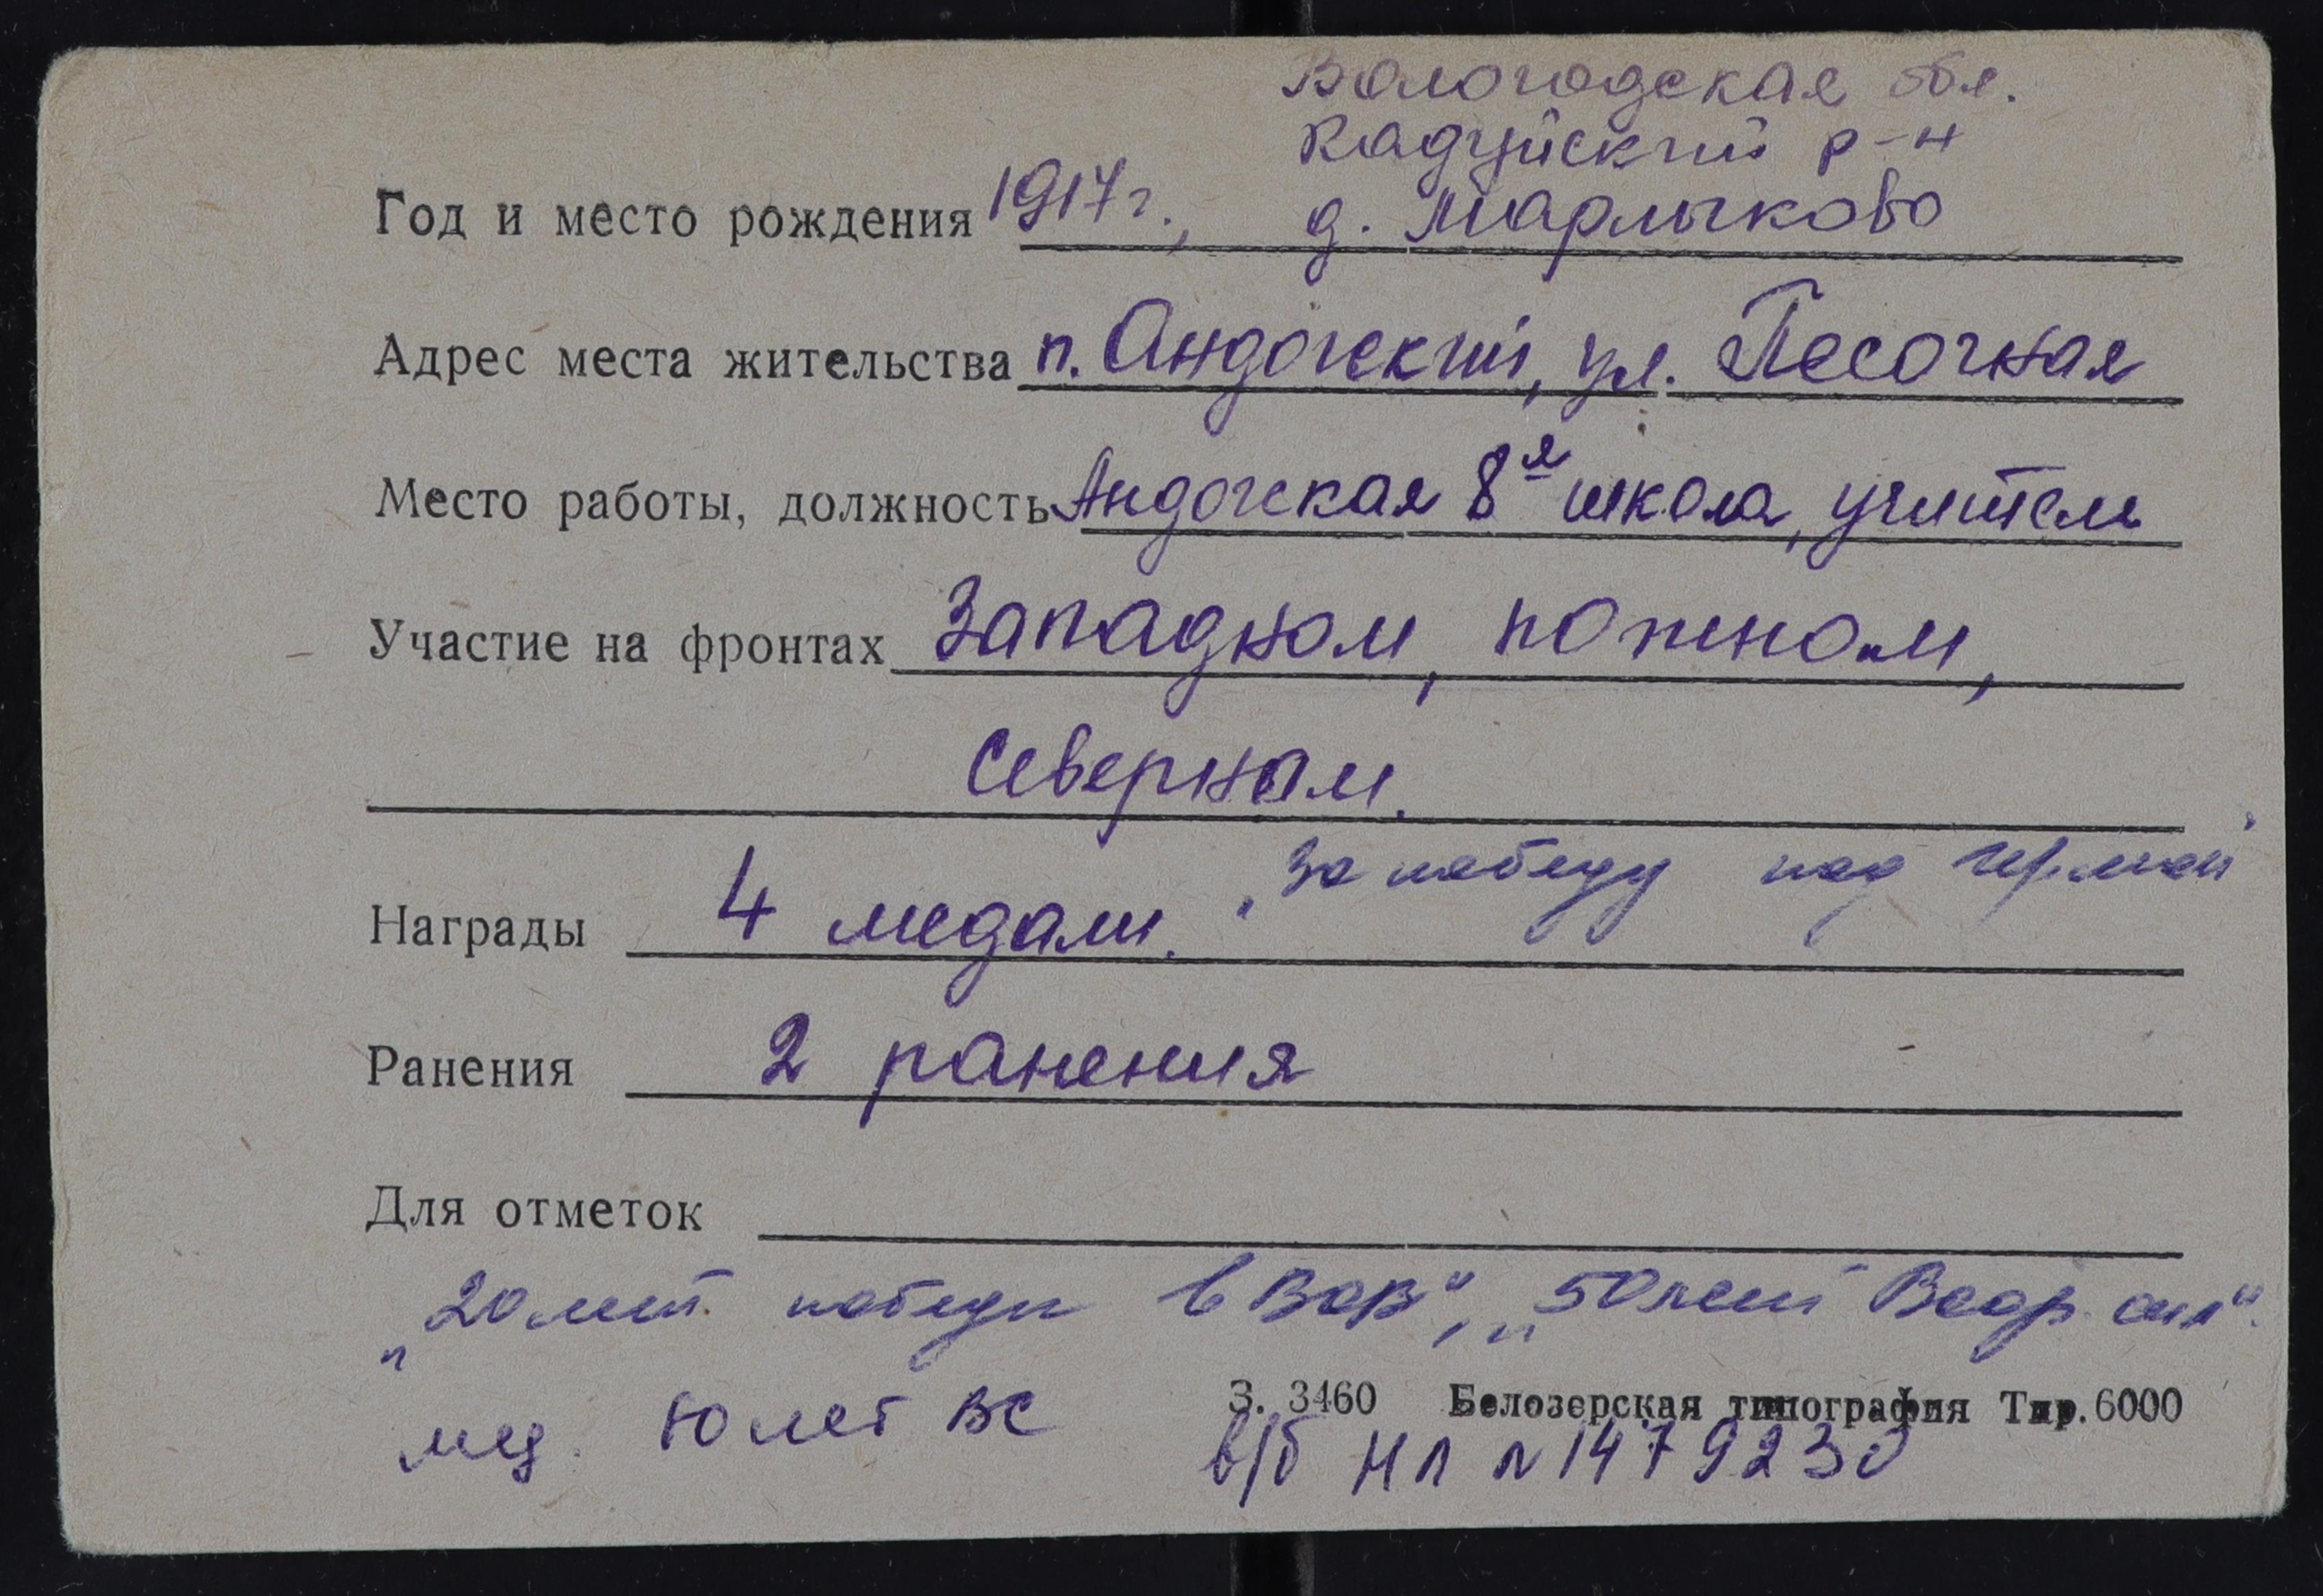 Вологодская обл.
Кадуйский р-н
Год и место рождения 1917 г., д. Марлыково
Адрес места жительства п. Андогский, ул. Песочная
Место работы, должность Андогская 8я школа, учитель
Участие на фронтах Западном, южном,
Северном.
Награды 4 медали. „За победу над Герман"
Ранения 2 ранения
Для отметок
„20 лет победы в ВОВ", „50 лет Воор. сил".
мед. 60 лет ВС
З. 3460 Белозерская типография Тир. 6000
в/б НЛ № 1479230